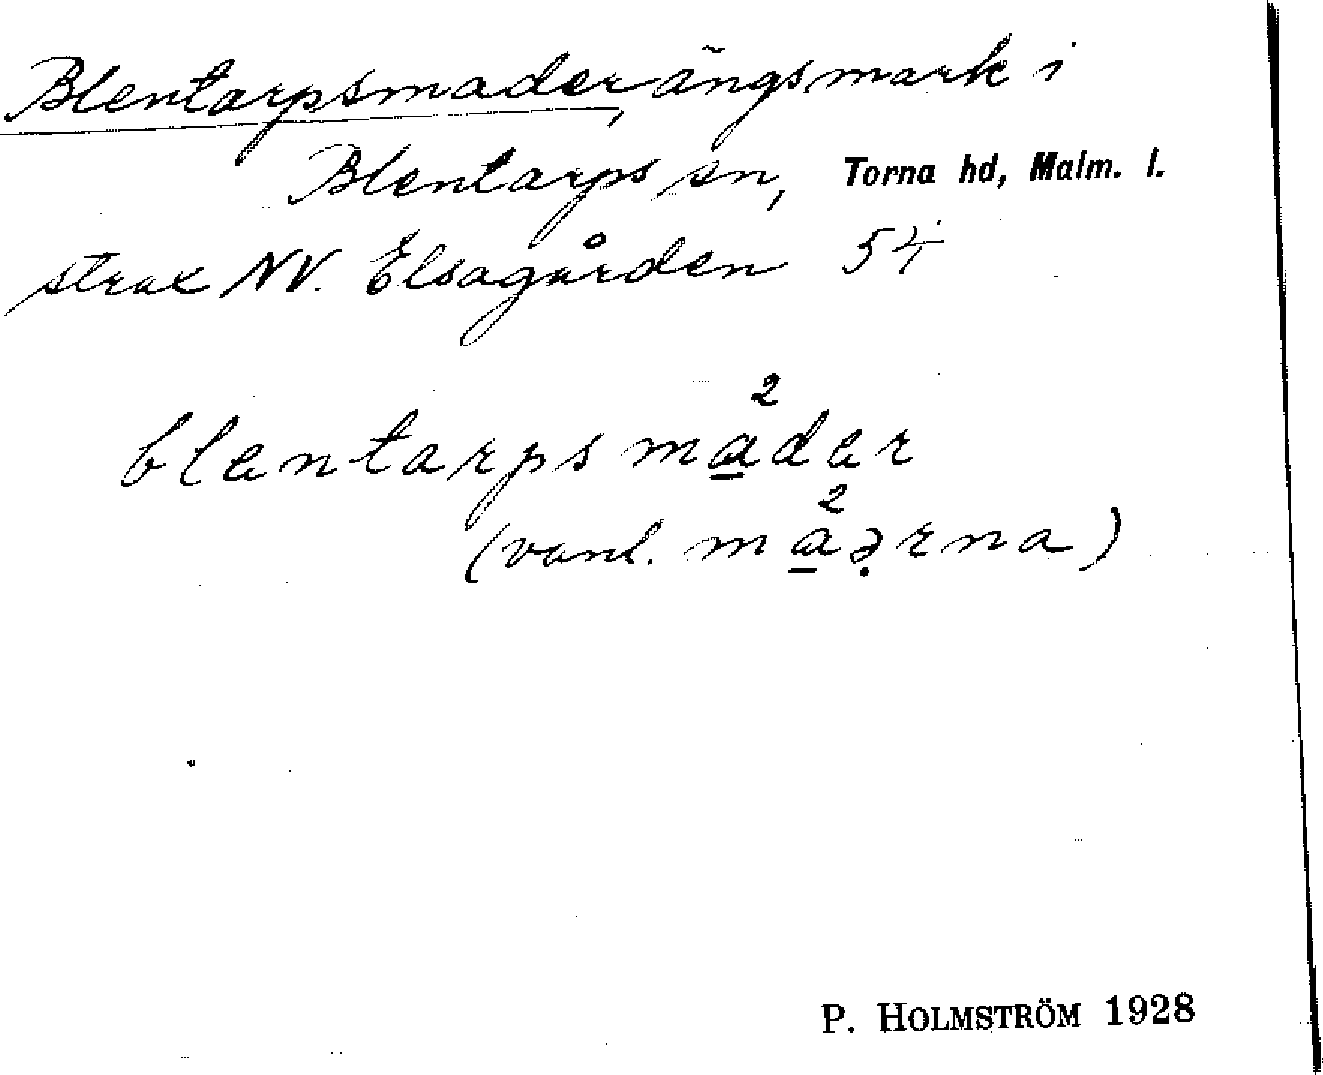 Blentarpsmader, ängsmark i
Blentarps sn, Torna hd, Malm. l.
strax NV. Elsagården 54
blentarps ma̲²dar
(vanl. ma̲²ə̣rna)
P. HOLMSTRÖM 1928